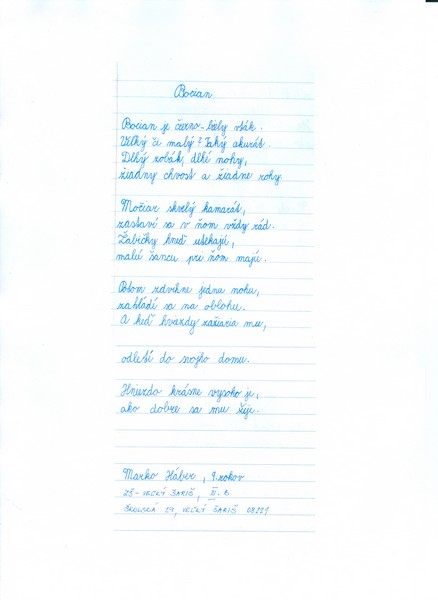 Bocian
Bocian je čierno-biely vták.
Veľký či malý? Taký akurát.
Dlhý zobák, dlhé nohy,
žiadny chvost a žiadne rohy.
Močiar skvelý kamarát,
zastaví sa v ňom vždy rád.
Žabičky hneď utekajú,
malú šancu pri ňom majú.
Potom zdvihne jednu nohu,
zahľadí sa na oblohu.
A keď hviezdy zažiaria mu,
odletí do svojho domu.
Hniezdo krásne vysoko je,
ako dobre sa mu žije.
Marko Háber, 9. rokov
ZŠ - VEĽKÝ ŠARIŠ, III. B
ŠKOLSKÁ 29, VEĽKÝ ŠARIŠ 08221